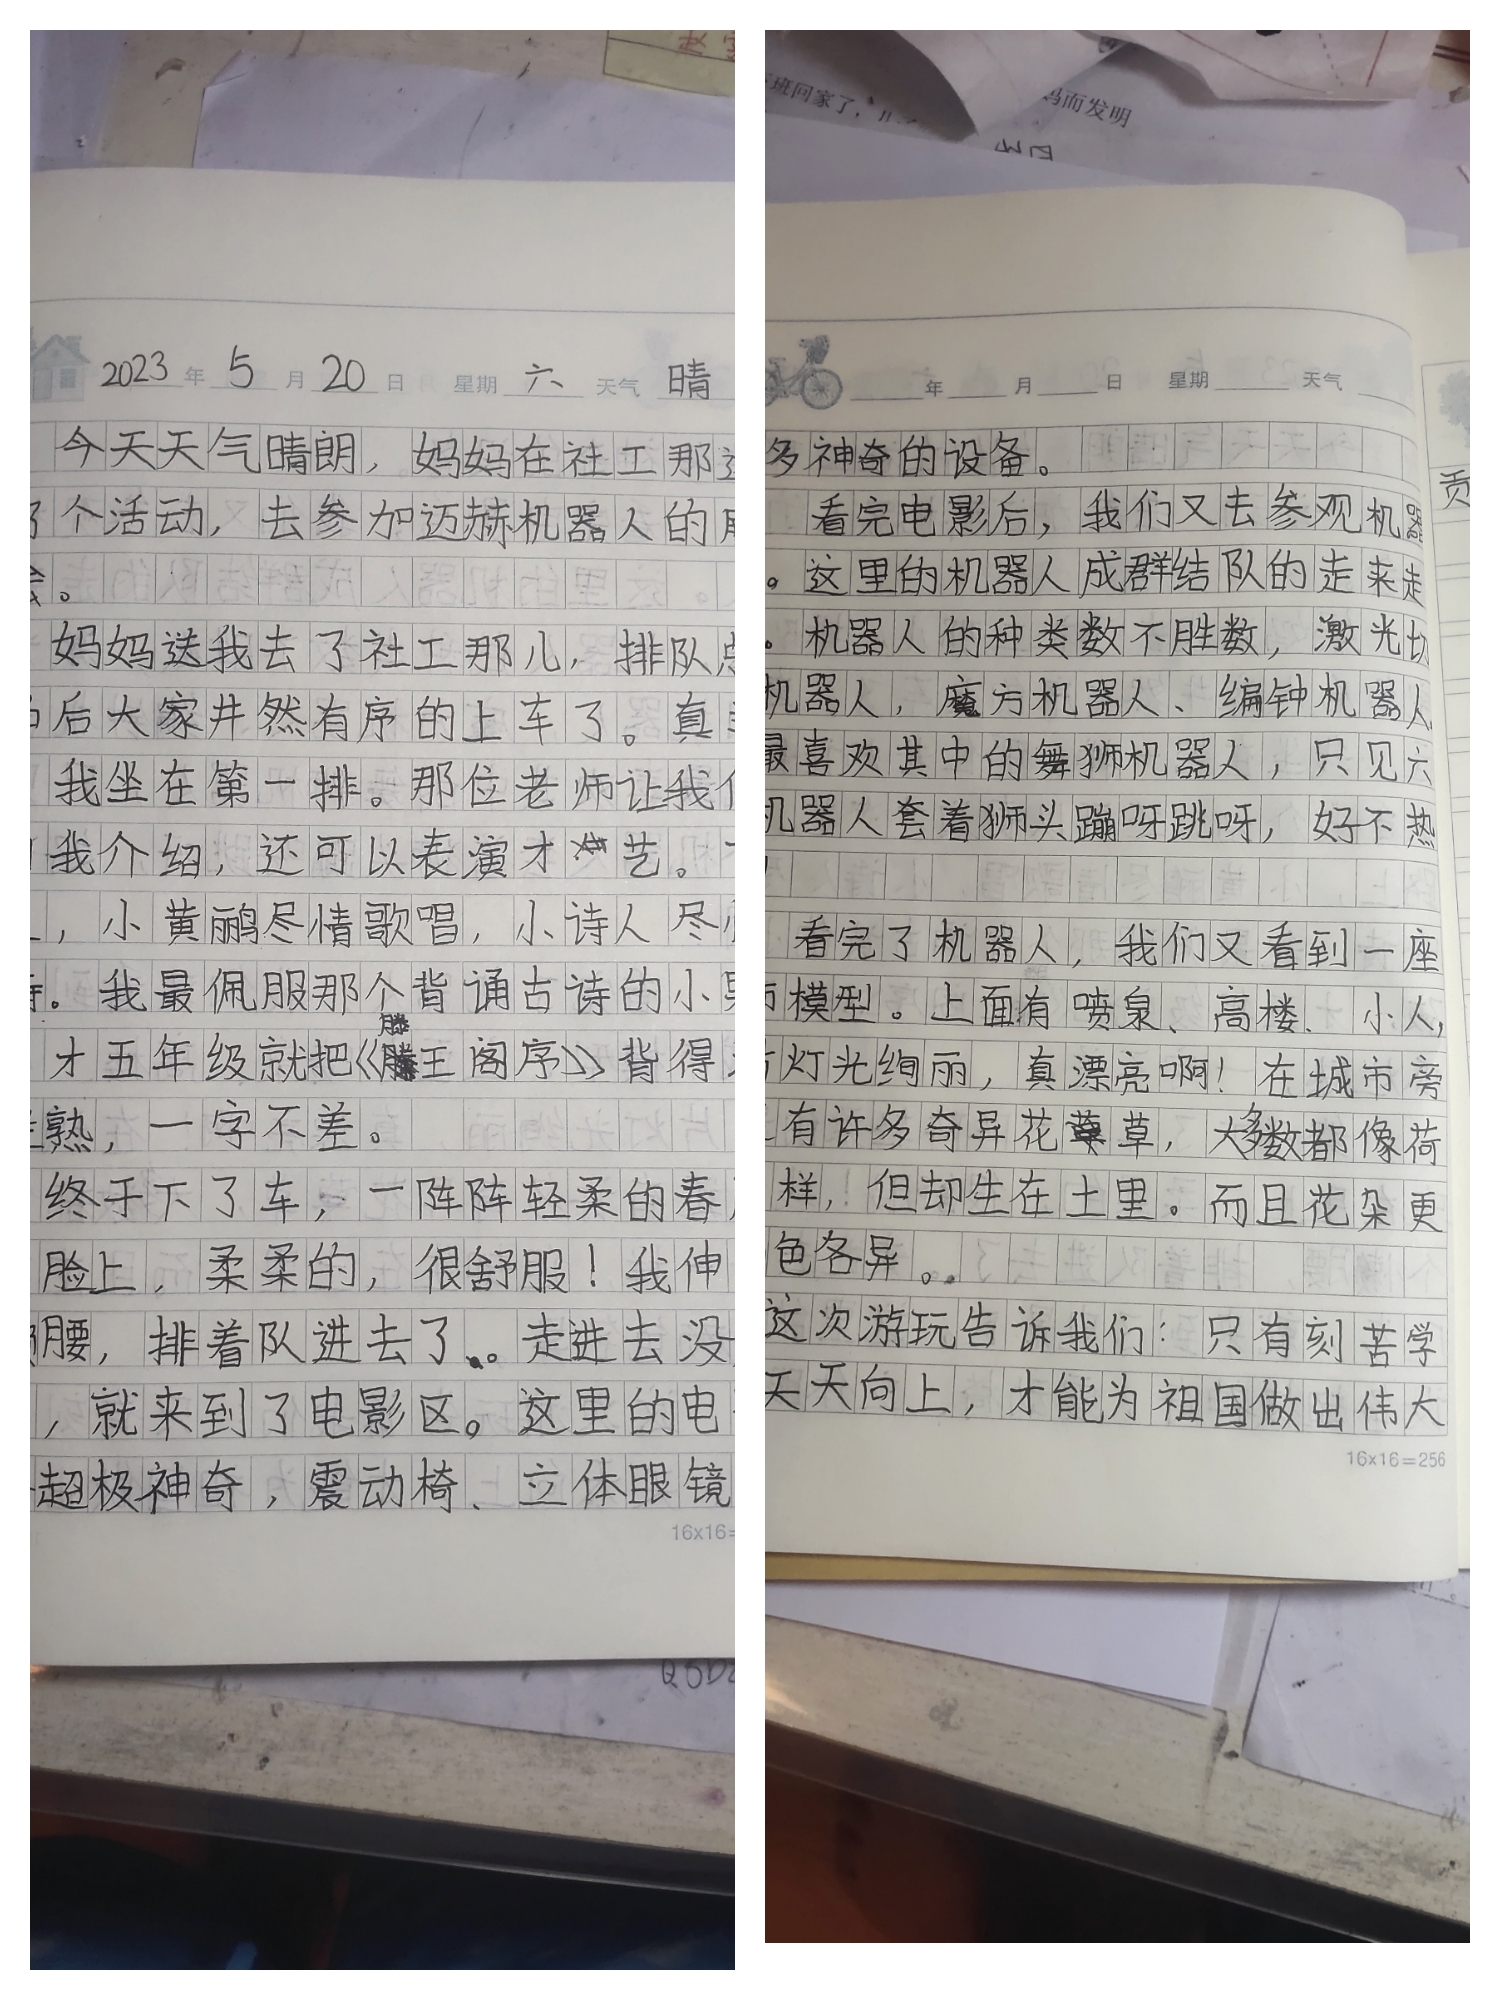 2023年5月20日 星期六 天气 晴
今天天气晴朗，妈妈在社工那
个活动，去参加迈赫机器人的
。
妈妈送我去了社工那儿，排队
后大家井然有序的上车了。真
我坐在第一排。那位老师让我
我介绍，还可以表演才艺。
，小黄鹂尽情歌唱，小诗人尽
。我最佩服那个背诵古诗的小
滕
才五年级就把《王阁序》背得
熟，一字不差。
终于下了车，一阵阵轻柔的春
脸上，柔柔的，很舒服！我伸
腰，排着队进去了。走进去没
，就来到了电影区。这里的电
超极神奇，震动椅、立体眼镜
16x16=
班回家了，
妈而发明
年 月 日 星期 天气
多神奇的设备。
看完电影后，我们又去参观机器
。这里的机器人成群结队的走来走
。机器人的种类数不胜数，激光切
机器人，魔方机器人、编钟机器人
最喜欢其中的舞狮机器人，只见六
机器人套着狮头蹦呀跳呀，好不热
看完了机器人，我们又看到一座
模型。上面有喷泉、高楼、小人，
灯光绚丽，真漂亮啊！在城市旁
有许多奇异花草，大多数都像荷
样，但却生在土里。而且花朵更
色各异。
这次游玩告诉我们：只有刻苦学
天天向上，才能为祖国做出伟大
16x16=256
贡